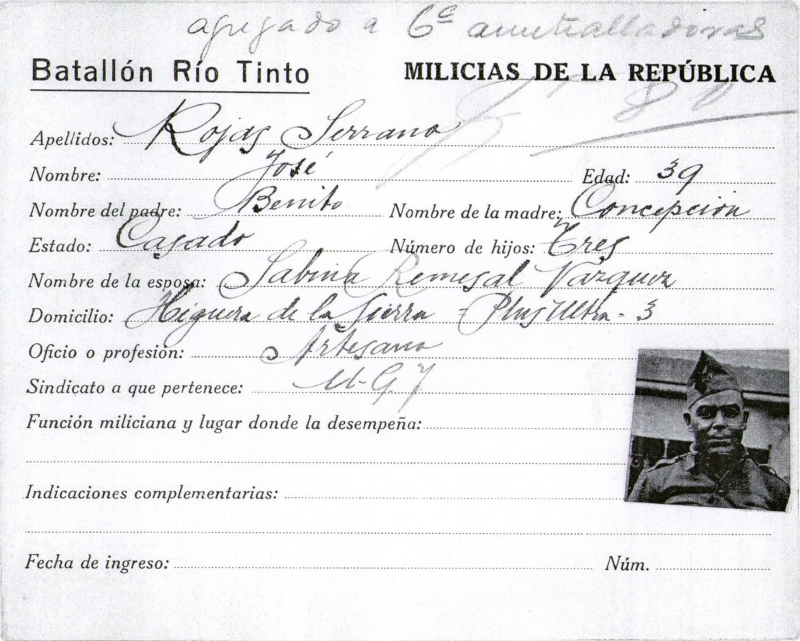 agregado a 6ª ametralladoras
Batallón Río Tinto MILICIAS DE LA REPÚBLICA
Apellidos: Rojas Serrano
Nombre: José Edad: 39
Nombre del padre: Benito Nombre de la madre: Concepción
Estado: Casado Número de hijos: Tres
Nombre de la esposa: Sabina Remesal Vázquez
Domicilio: Higuera de la Sierra - Plus Ultra - 3
Oficio o profesión: Artesano
Sindicato a que pertenece: U-G-T
Función miliciana y lugar donde la desempeña:
Indicaciones complementarias:
Fecha de ingreso: Núm.